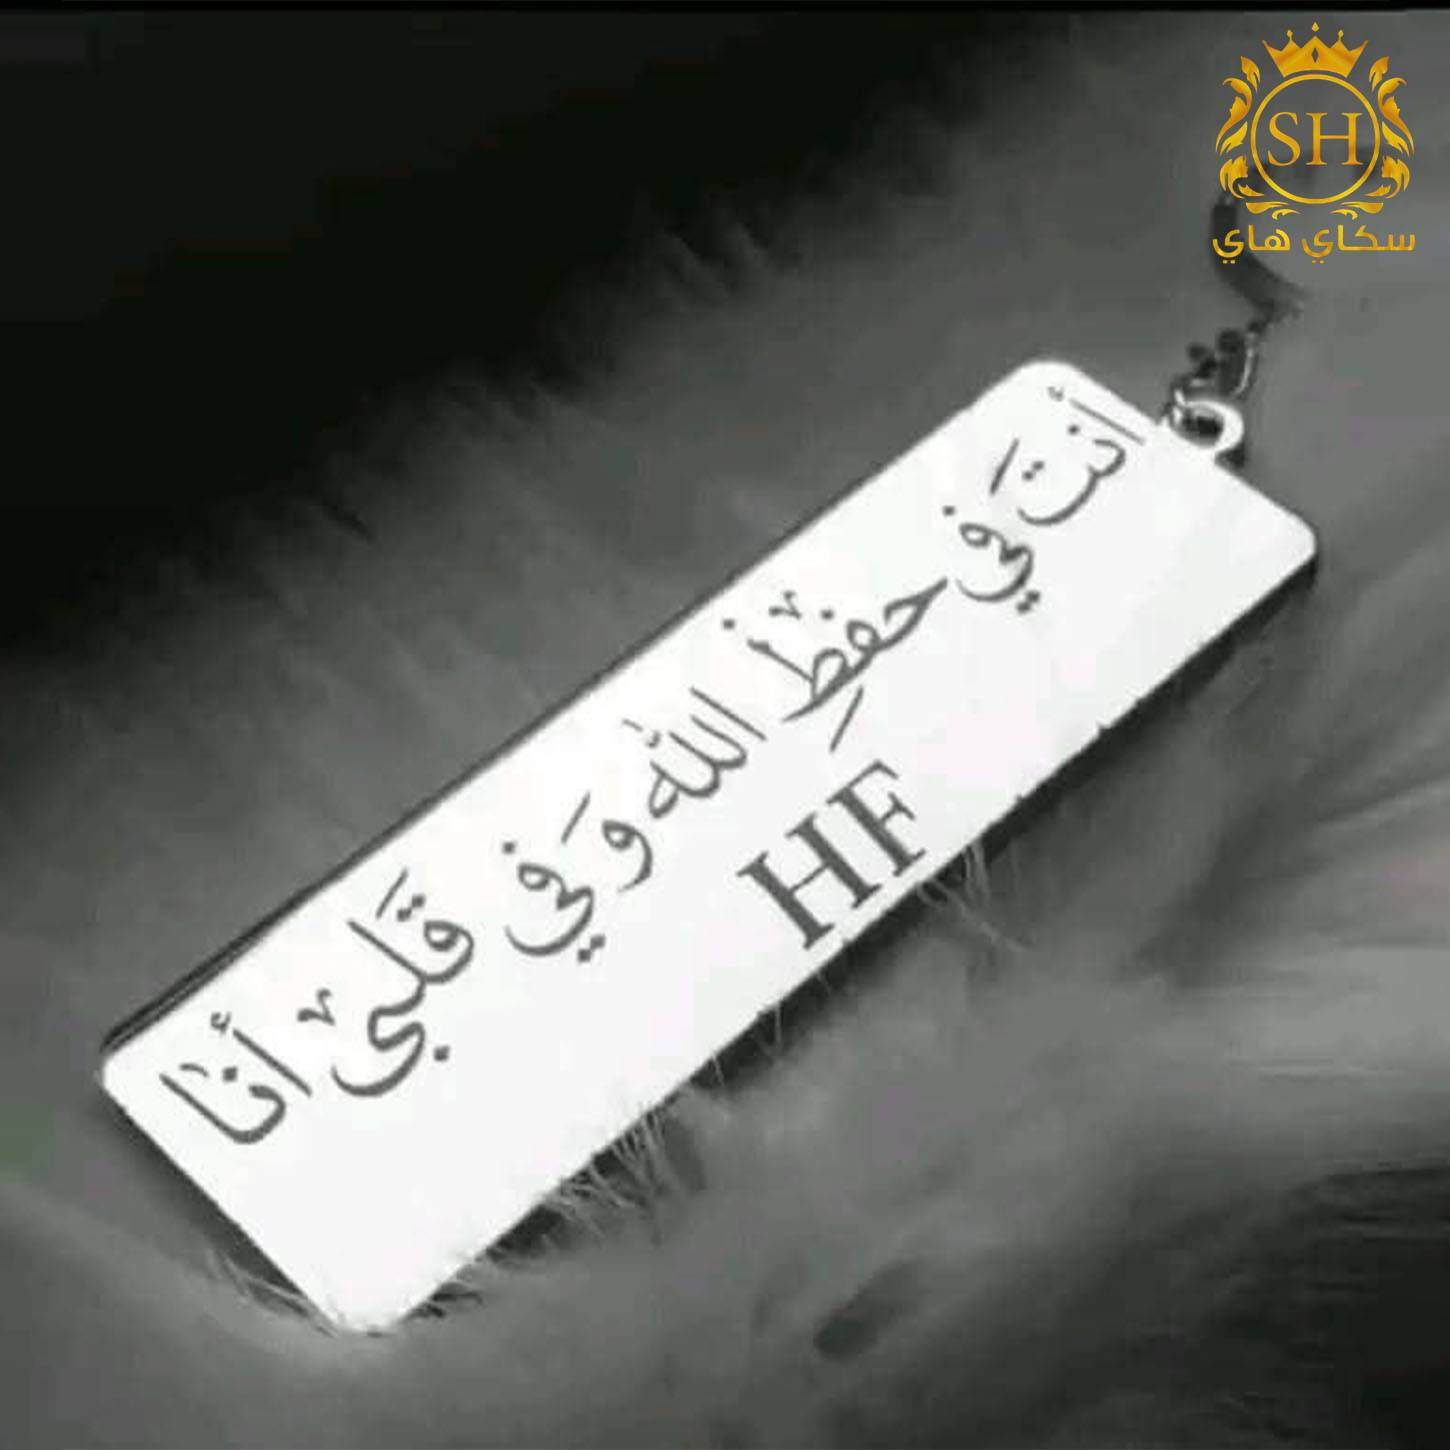 SH
سكاي هاي
أنتَ في حفظِ الله وَفي قَلبي أنا
HF